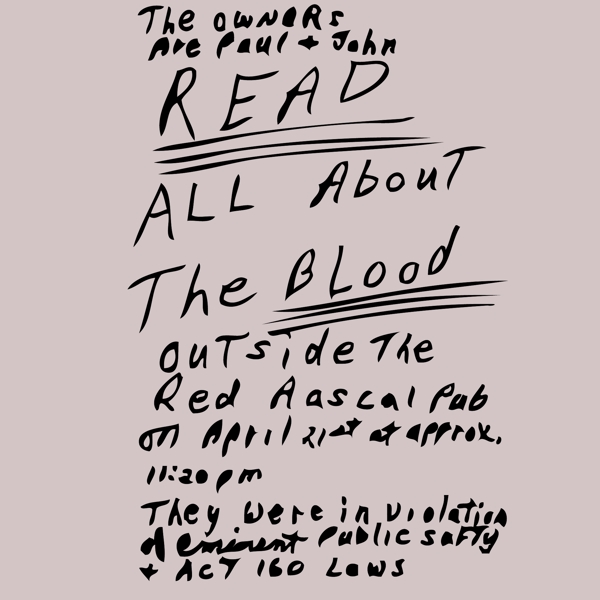 The owners
Are Paul + John
READ
ALL About
The Blood
outside The
Red Rascal Pub
on April 21st at approx.
11:20 pm
They were in violation
of eminent Public safty
+ ACT 160 Laws